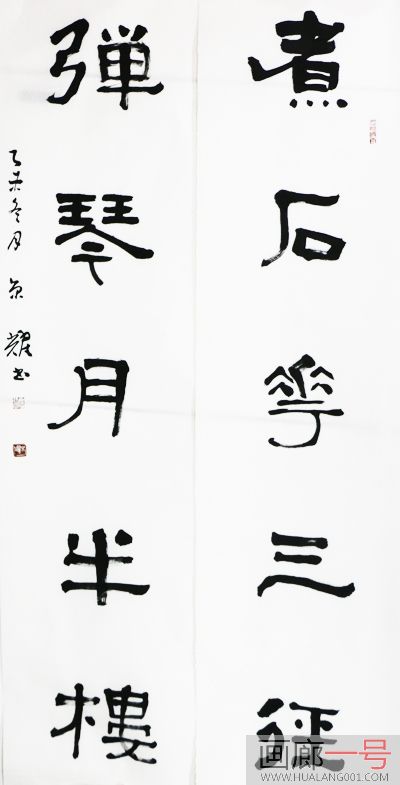 煮石花三径
弹琴月半楼
乙未冬月 京 耀书
画廊一号
WWW.HUALANG001.COM